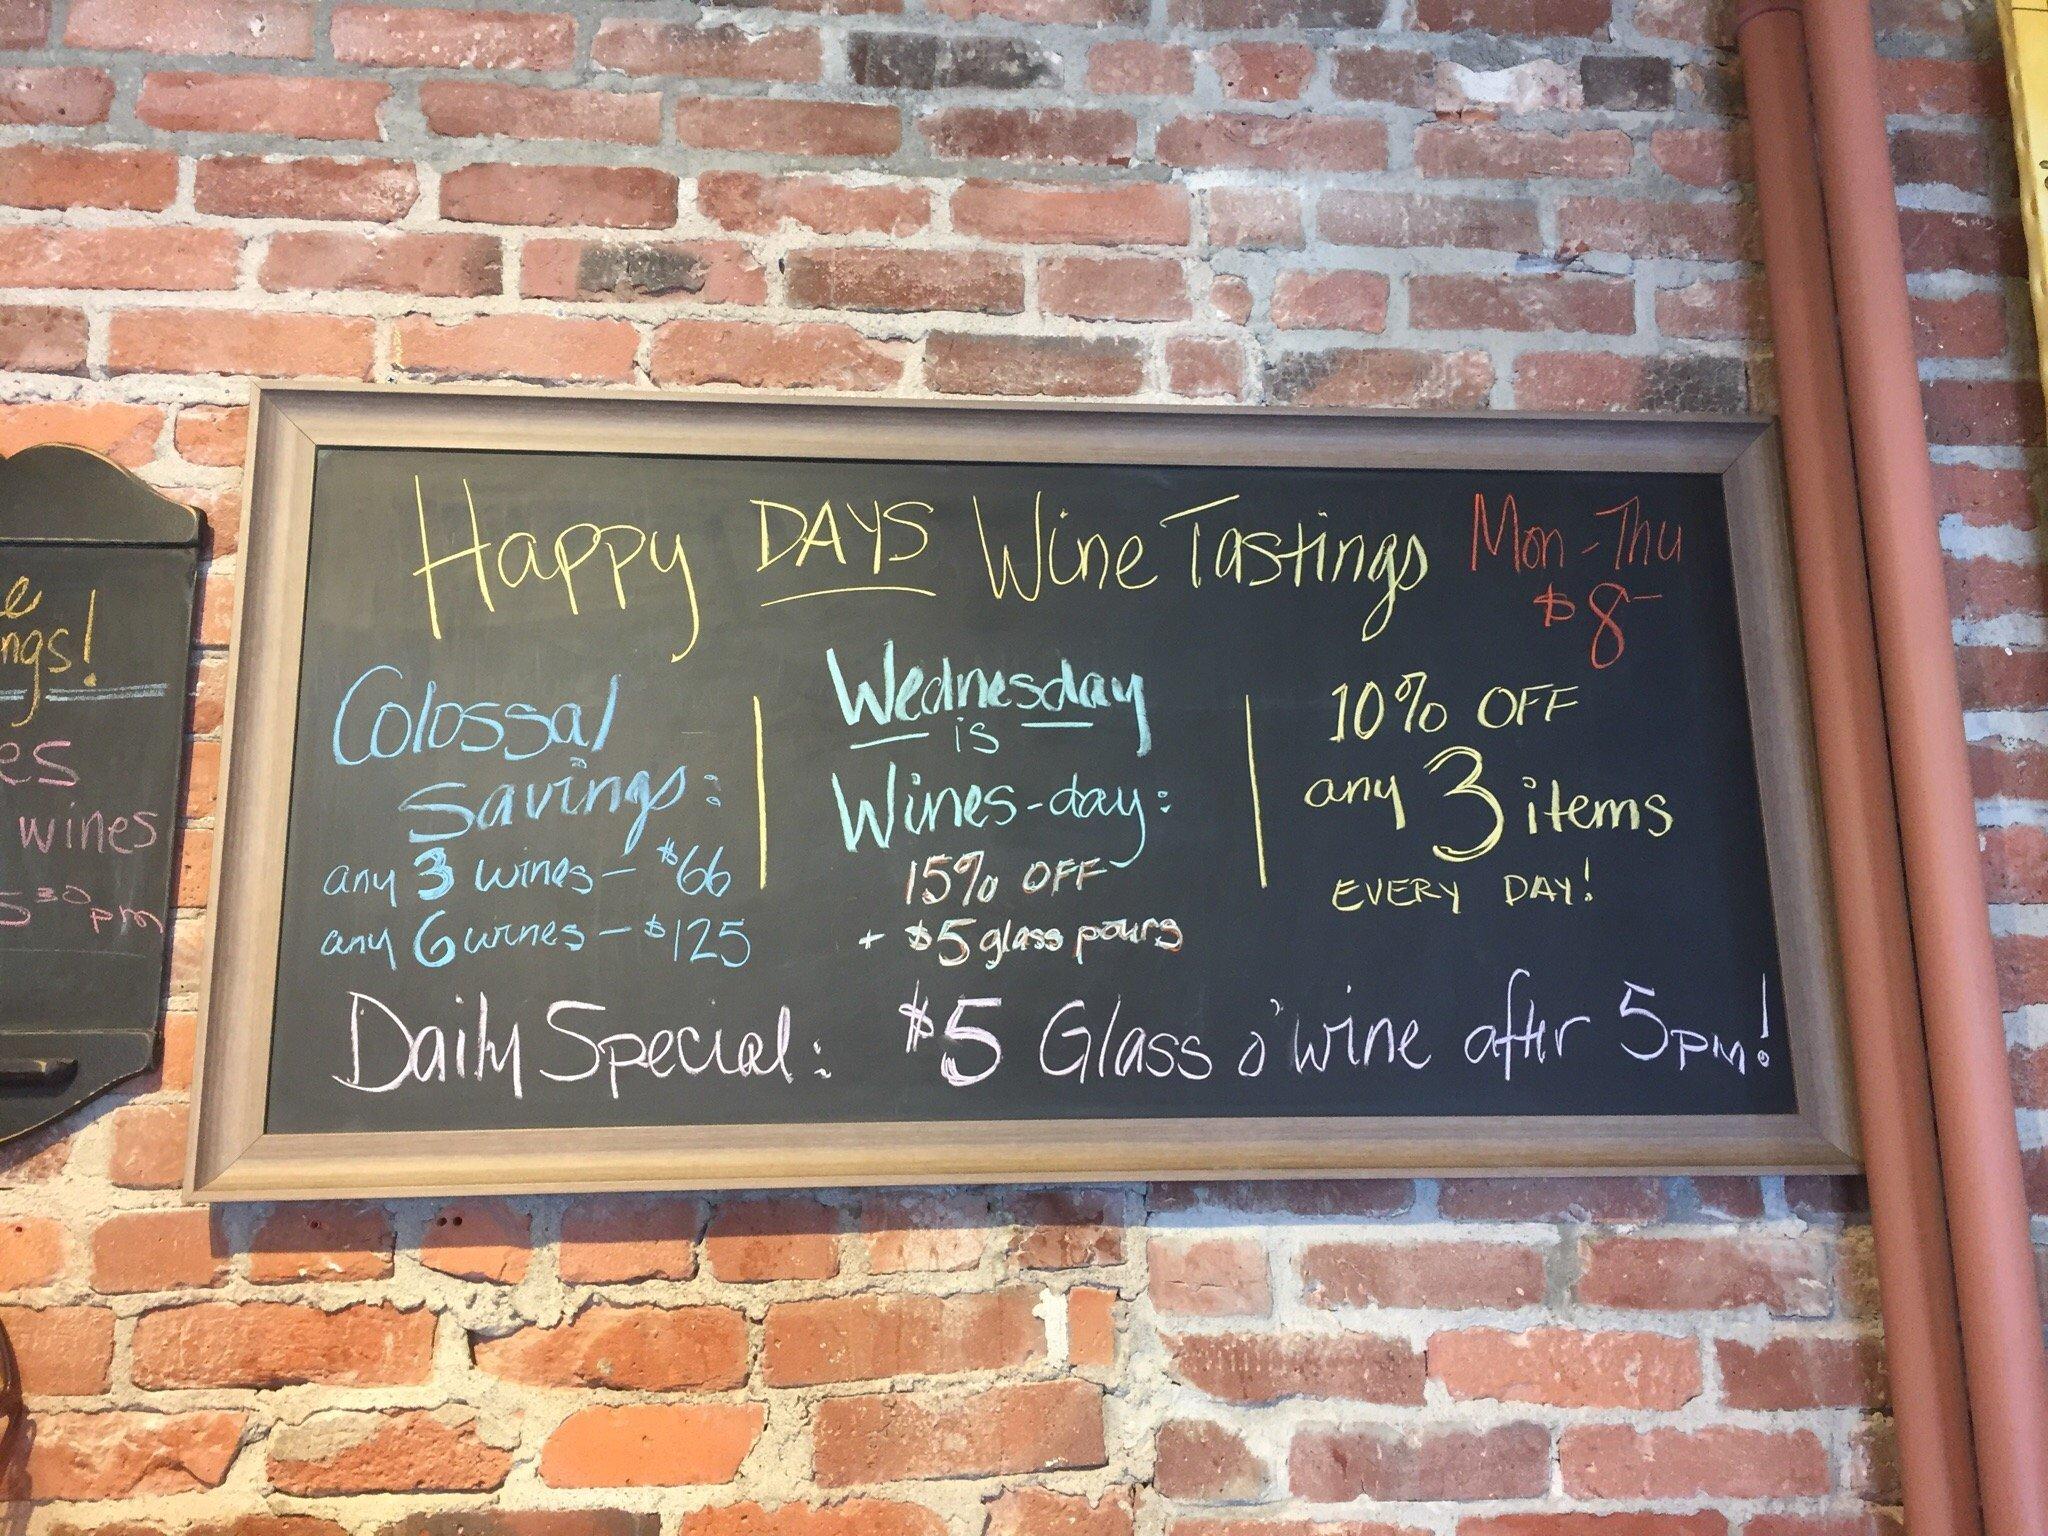 Happy DAYS Wine Tastings Mon-Thu
$8-
Colossal
Savings:
any 3 wines - $66
any 6 wines - $125
Wednesday
is
Wines-day:
15% OFF
+ $5 glass pours
10% OFF
any 3 items
EVERY DAY!
Daily Special: $5 Glass o'wine after 5pm!
e
ngs!
es
wines
5 30 pm